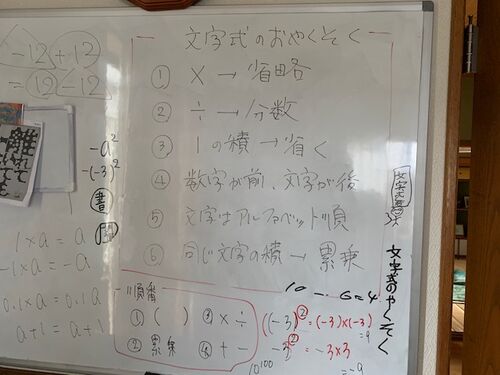 -12+12
=12-12
離れて
-a²
-(-3)²
書
1×a = a
-1×a = a
0.1×a = 0.1a
a+1 = a+1
文字式のおやくそく
① × → 省略
② ÷ → 分数
③ 1の積 → 省く
④ 数字が前、文字が後
⑤ 文字はアルファベット順
⑥ 同じ文字の積 → 累乗
順番
① ( ) ③ × ÷
② 累乗 ④ + -
10 - 6 = 4
(-3)² = (-3)×(-3)
=9
-3² = -3×3
=-9
10¹⁰⁰
文字式のやくそく